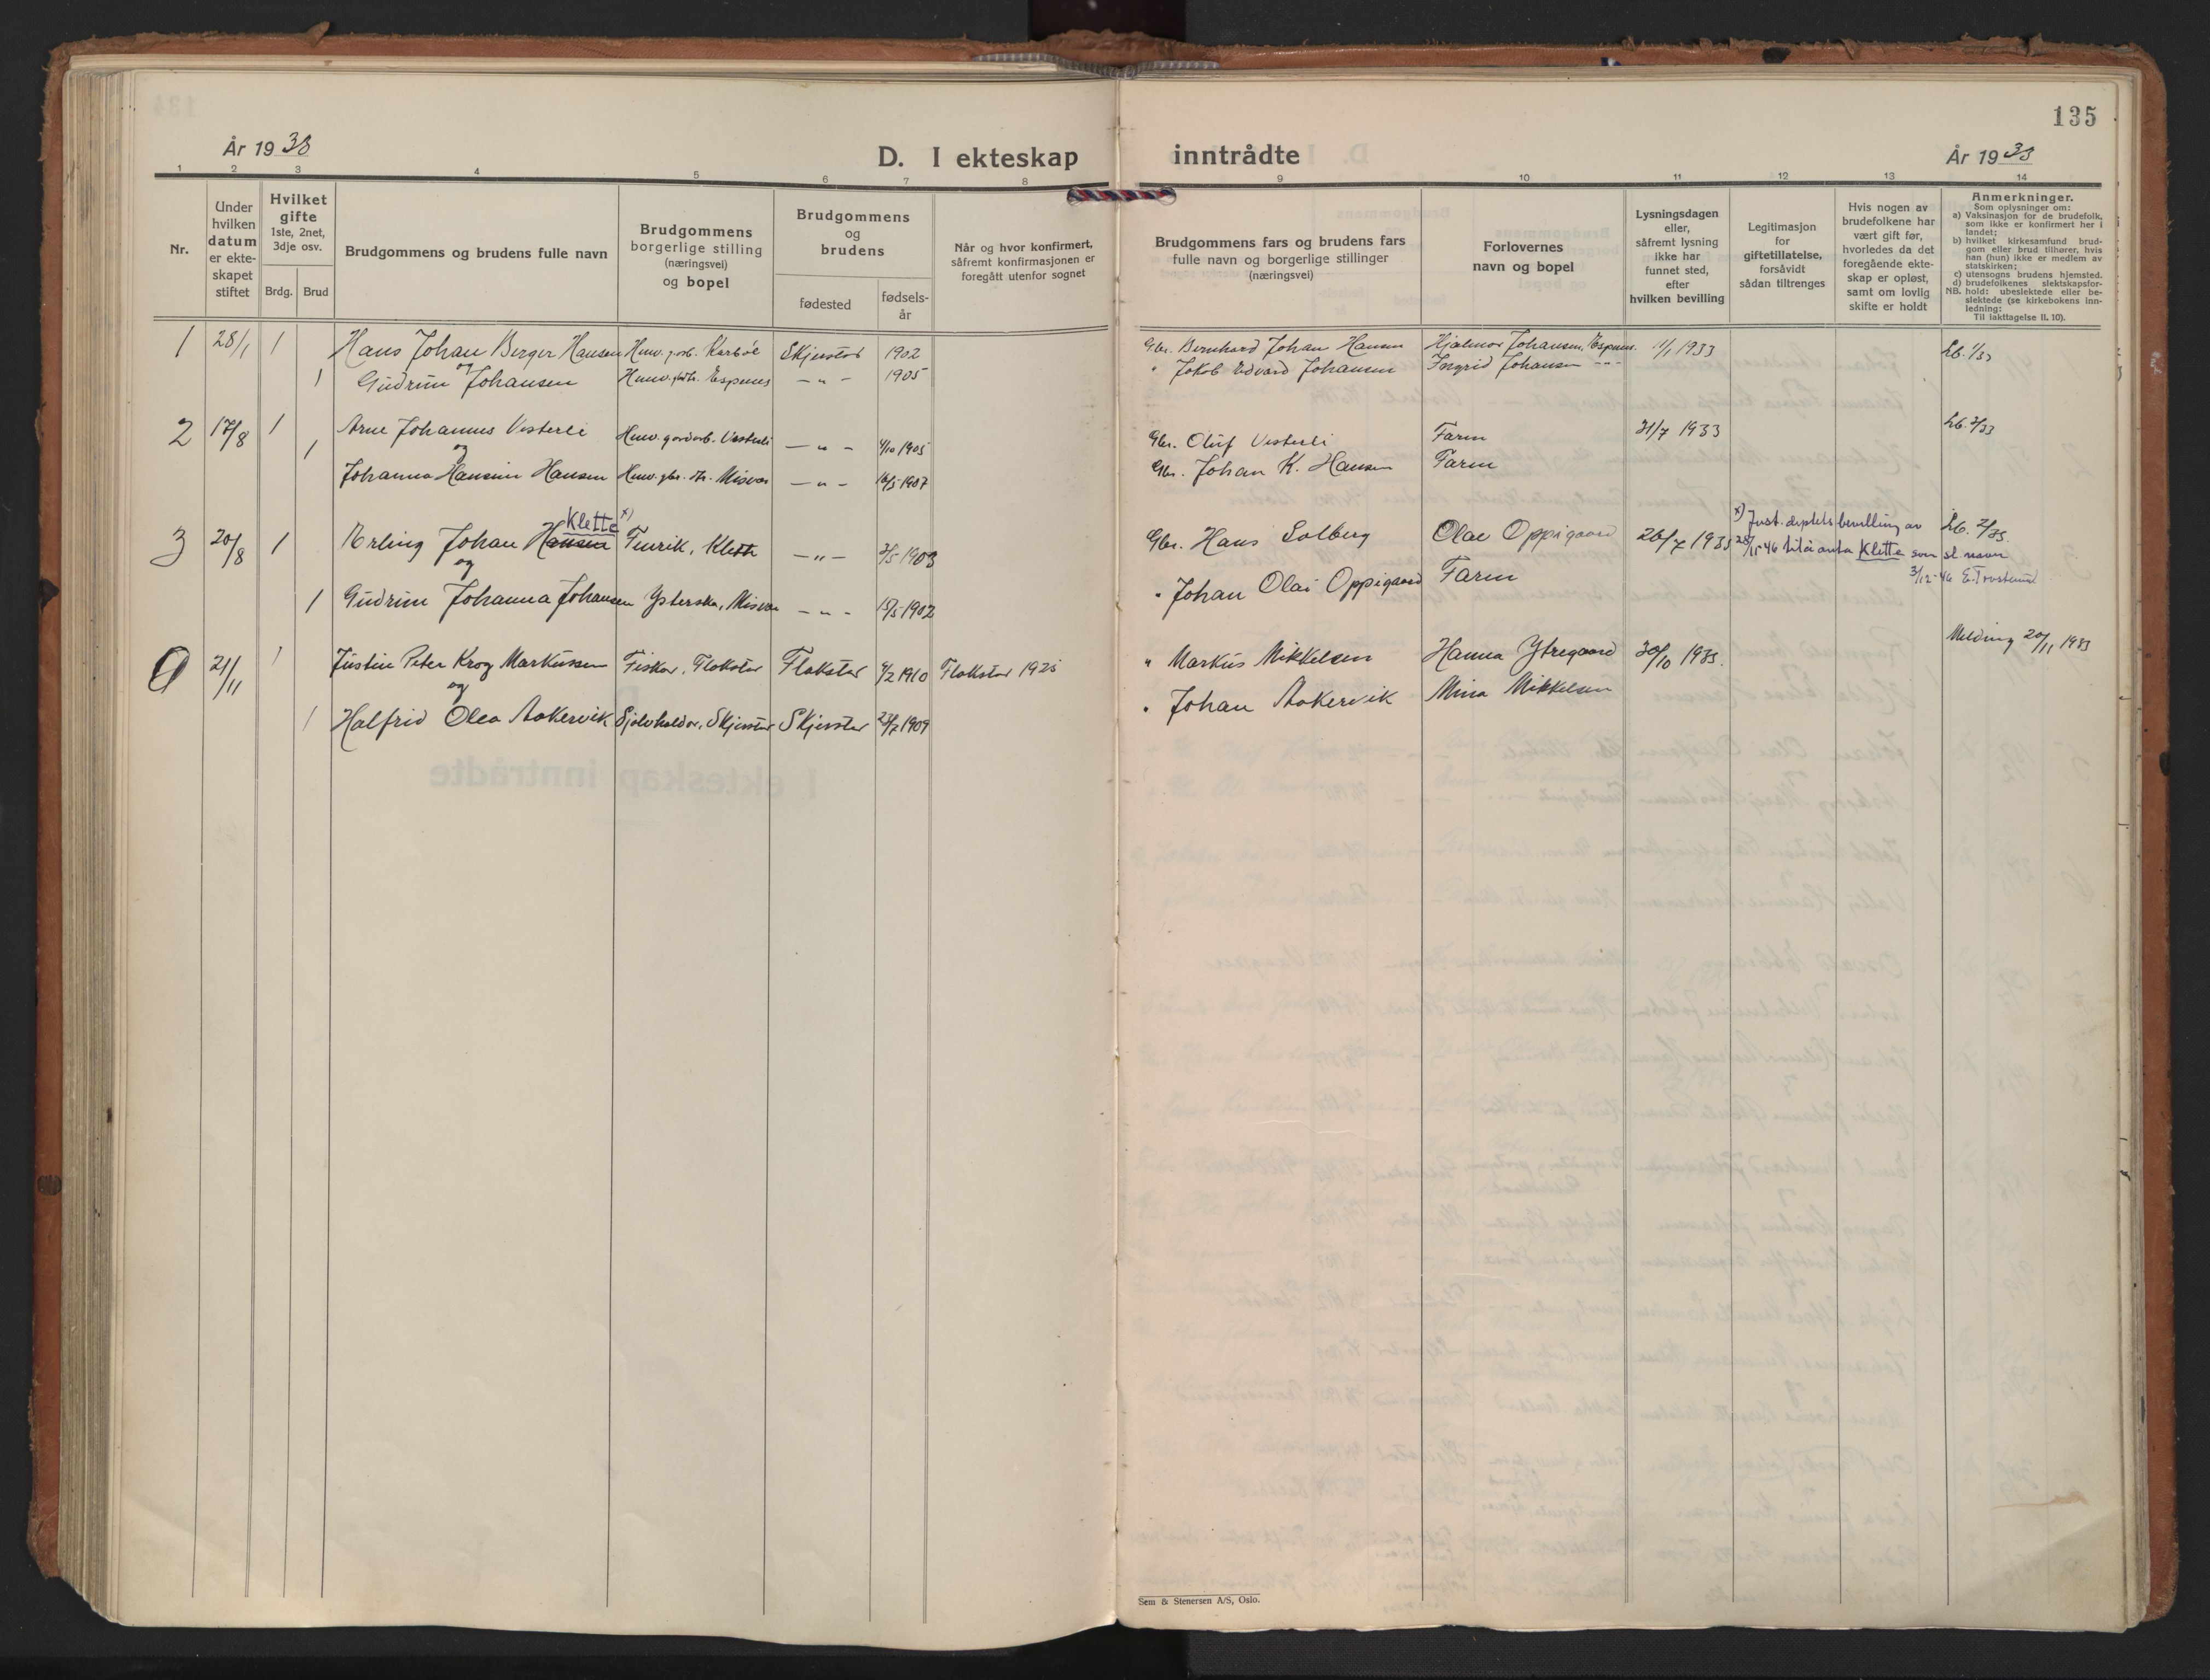 135
År 1933
D. I ekteskap inntrådte
År 1933
1 2 3 4 5 6 7 8 9 10 11 12 13 14
Nr.
Under hvilken datum er ekteskapet stiftet
Hvilket gifte 1ste, 2net, 3dje osv.
Brdg. Brud
Brudgommens og brudens fulle navn
Brudgommens borgerlige stilling (næringsvei) og bopel
Brudgommens og brudens
fødested
fødselsår
Når og hvor konfirmert, såfremt konfirmasjonen er foregått utenfor sognet
Brudgommens fars og brudens fars fulle navn og borgerlige stillinger (næringsvei)
Forlovernes navn og bopel
Lysningsdagen eller, såfremt lysning ikke har funnet sted, efter hvilken bevilling
Legitimasjon for giftetillatelse, forsåvidt sådan tiltrenges
Hvis nogen av brudefolkene har vært gift før, hvorledes da det foregående ekteskap er opløst, samt om lovlig skifte er holdt
Anmerkninger.
Som oplysninger om:
a) Vaksinasjon for de brudefolk, som ikke er konfirmert her i landet;
b) hvilket kirkesamfund brudgom eller brud tilhører, hvis han (hun) ikke er medlem av statskirken;
c) utensogns brudens hjemsted.
d) brudefolkenes slektskapsforhold: ubeslektede eller beslektede (se kirkebokens innledning:
NB. Til iakttagelse II. 10).
1 28/1 1 Hans Johan Berger Hansen Karbøl Skjerstad 1902 Gbr. Bernhard Johan Hansen Hjalmar Johansen, Espenes. 11/1 1933 Lb. 1/33
og
1 Gudrun Johansen Espenes — " — 1905 " Jakob Edvard Johansen Ingrid Johansen — " —
2 17/8 1 Arne Johannes Vesterli Vesterli — " — 4/10 1905 Gbr. Oluf Vesterli Faren 31/7 1933 Lb. 2/33
1 og
Johanna Hansine Hansen Misvær — " — 16/5 1907 Gbr. Johan K. Hansen Faren
Klette x)
3 20/8 1 Erling Johan Hansen Klette — " — 1903 Gbr. Hans Solberg Olav Oppigaard 26/7 1933 Lb. 2/33.
x) Just.dept.ets bevilling av
28/11-46 til å anta Klette som sl.navn
3/12-46
og
1 Gudrun Johanna Johansen Misvær — " — 15/5 1902 " Johan Olai Oppigaard Faren
21/11 1 Justin Peter Krog Markussen Fisker, Flakstad Flakstad 4/2 1910 Flakstad 1925 " Markus Mikkelsen Hanna Ytregaard 30/10 1933. Melding 20/11 1933
og
1 Halfrid Olea Aakervik Skjerstad Skjerstad 23/7 1909 " Johan Aakervik Mina Mikkelsen
Sem & Stenersen A/S, Oslo.